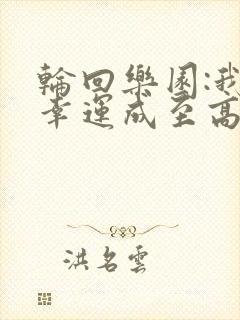 輪回樂園:我
幸運成至高
洪名雲